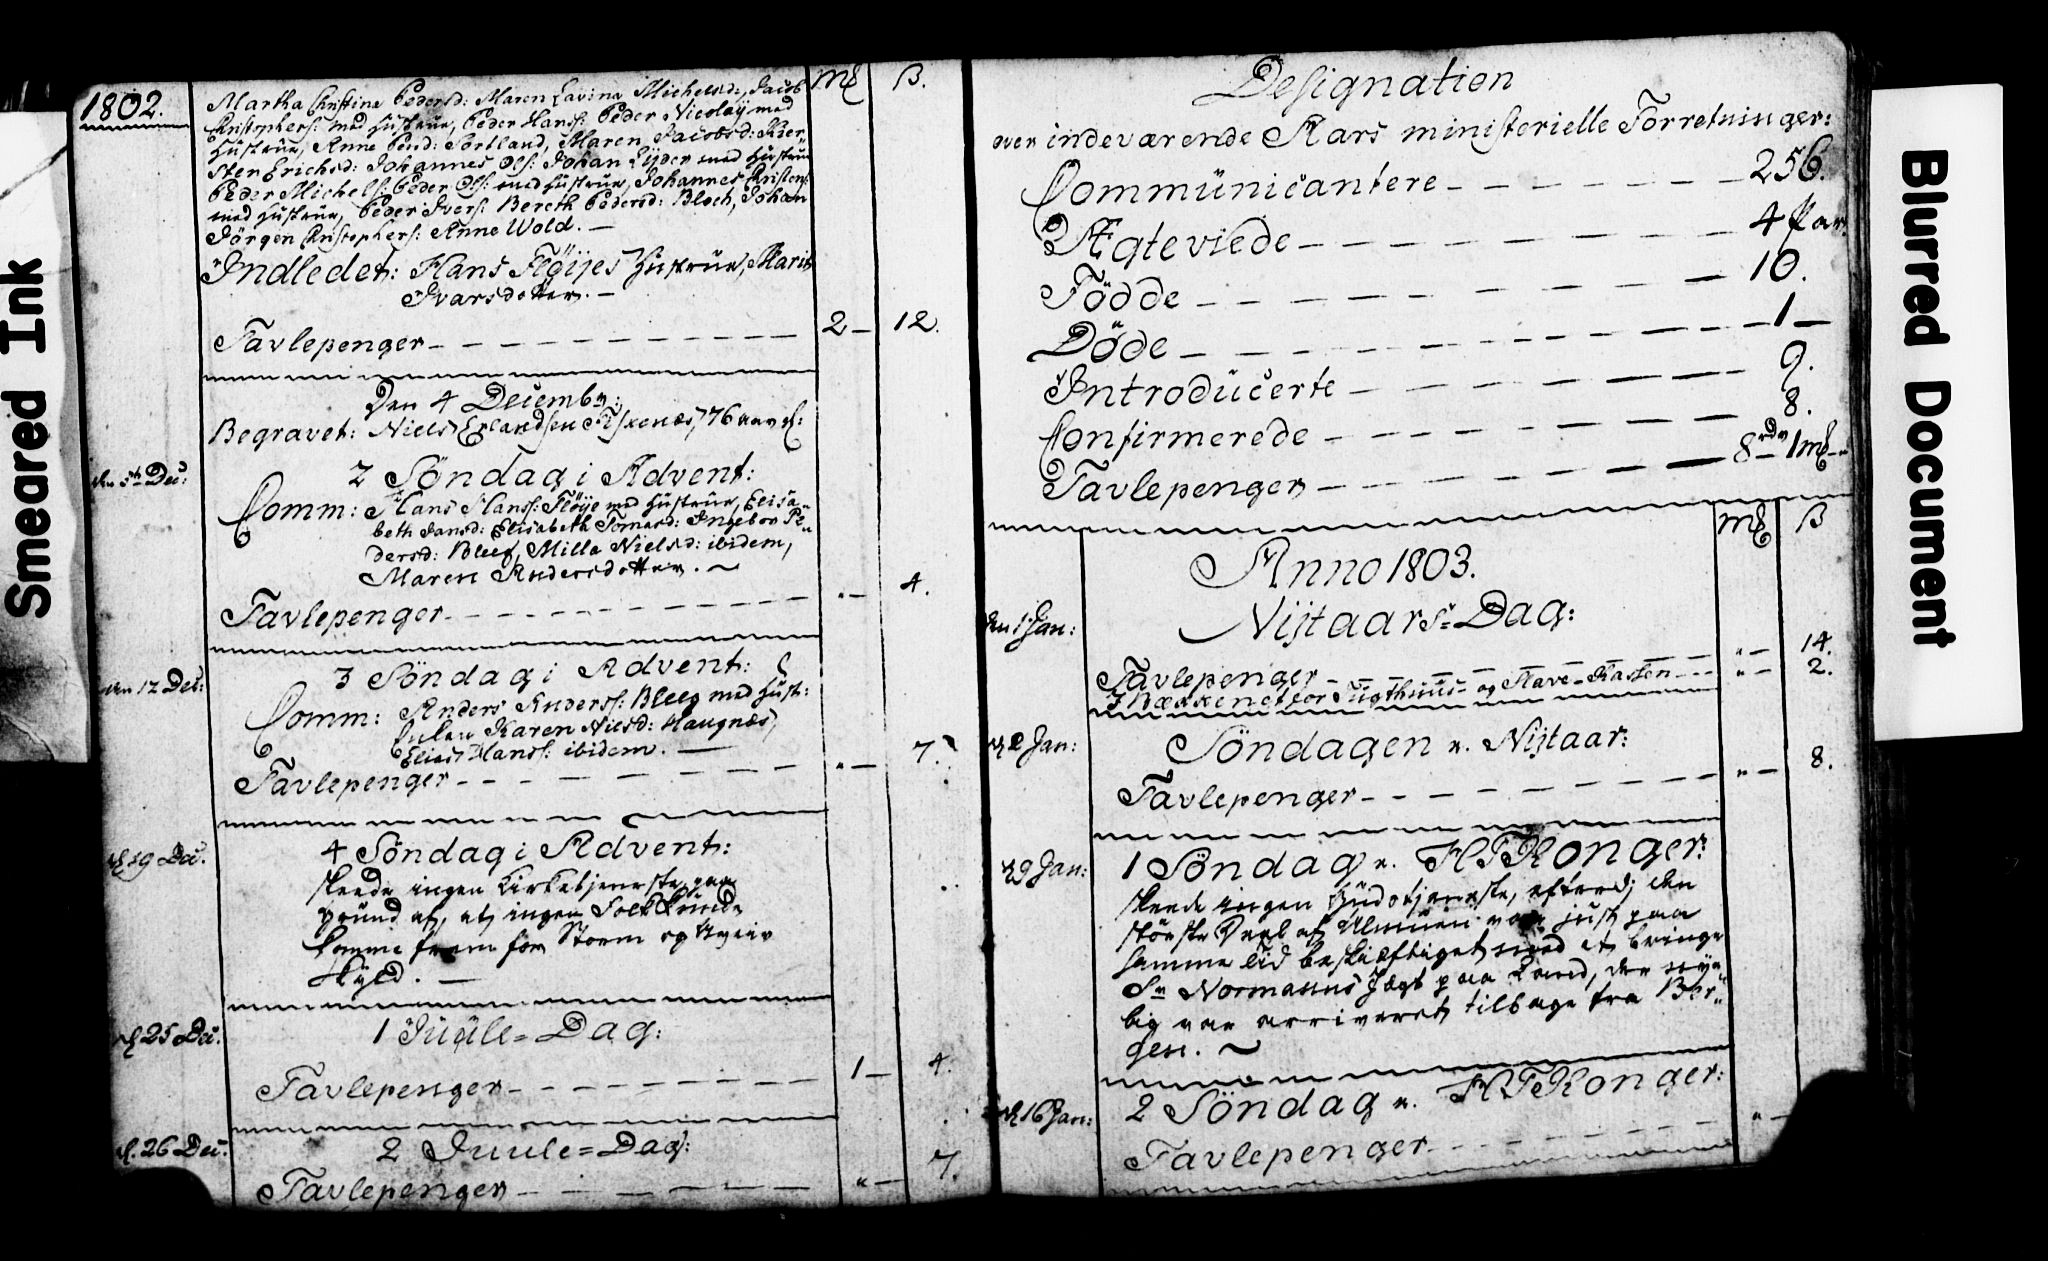 Smeared Ink
1802.
Mk ẞ.
Martha Christina Pedersd: Maren Lavina Michelsd:, Jacob
Christophers: med Hustrue, Peder Hanss: Peder Nicolaÿ med
Hustrue, Anne Pedsd: Sortland, Maren Jacobsd: Kier-
sten Erichsd: Johannes Ols: Johan Lÿder med Hustrue
Peder Michels: Peder Ols: med Hustrue, Johannes Christens:
med Hustrue, Peder Ivers: Bereth Pedersd: Bloch, Johan
Jörgen Christophers: Anne Wold. —
Indledet: Hans Flöijes Hustrue, Marit
Ivarsdotter. —
Tavlepenger — 2 — 12.
Den 4 Decembr:
Begravet: Niels Erlandsen 76 aar gl:
den 5te Dec: 2 Söndag i Advent:
Comm: Hans Hanss: Flöije med Hustrue, Elisa-
beth Jansd: Elisabeth Tomasd: Ingebor Pe-
dersd: Bleeg, Milla Nielsd: ibidem,
Maren Andersdotter. —
Tavlepenger — " — 4.
den 12 Dec: 3 Söndag i Advent:
Comm: Anders Anderss: Bleeg med Hust:
Enken Karen Nielsd: Haugnæs,
Elias Hanss: ibidem. —
Tavlepenger — " — 7.
d. 19 Dec. 4 Söndag i Advent:
skeede ingen Kirketjeneste, paa
grund af, at ingen Folk kunde
komme frem for Storm og Uveirs
Skÿld. —
d. 25 Dec. 1 Juule=Dag:
Tavlepenger — 1 — 4.
d. 26 Dec: 2 Juule=Dag:
Tavlepenger — " — 7.
Designation
over indeværende Aars ministerielle Forretninger:
Communicantere — 256.
Ægteviede — 4 Par.
Födde — 10.
Döde — 1 —
Introducerte — 9.
Confirmerede — 8.
Tavlepenger — 8 rdr 1 mk — "
Mk ẞ
Anno 1803.
den 1 Jan: Nijtaars=Dag:
Tavlepenger — " — 14.
I Bækkenet for Tugthuus- og Slave-Kassen — " — 2.
d. 2 Jan: Söndagen n. Nijtaar:
Tavlepenger — " — 8.
d. 9 Jan: 1 Söndag n. H.T.Konger:
skeede ingen Gudstjeneste, efterdj den
störste Deel af Almuen var just paa
samme Tid beskiæftiget med at bringe
Sr Normanns Jægt paa Land, der nye-
lig var arriveret tilbage fra Ber-
gen. —
d. 16 Jan: 2 Söndag n. H.T.Konger:
Tavlepenger — " —
Blurred Document